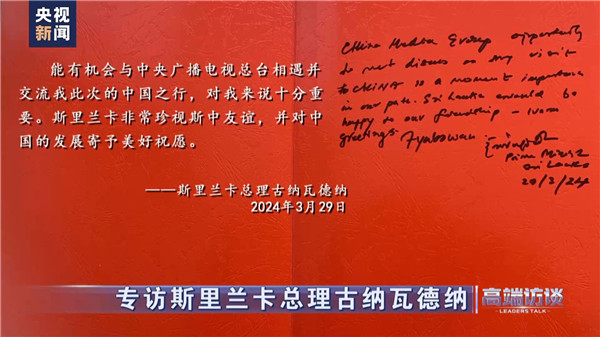 央视
新闻
能有机会与中央广播电视总台相遇并
交流我此次的中国之行，对我来说十分重
要。斯里兰卡非常珍视斯中友谊，并对中
国的发展寄予美好祝愿。
——斯里兰卡总理古纳瓦德纳
2024年3月29日
China Media Group opportunity
to meet discuss on my visit
to CHINA is a moment importance
in our path. Sri Lanka would be
happy to our friendship – warm
greetings. Ayubowan
Prime Minister
Sri Lanka
专访斯里兰卡总理古纳瓦德纳
高端访谈
LEADERS TALK